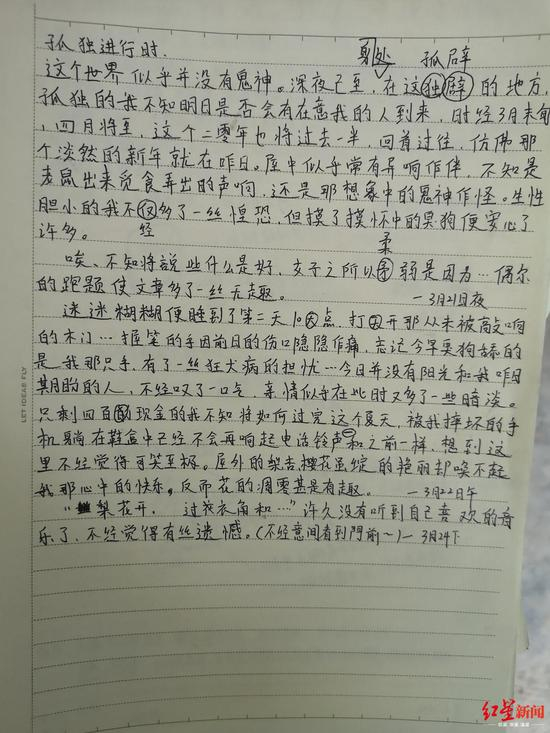 孤独进行时. 处 孤辟
这个世界似乎并没有鬼神。深夜已至,在这独辟的地方,
孤独的我不知明日是否会有在意我的人到来,时经3月末旬
,四月将至,这个二零年也将过去一半,回首过往,仿佛那
个淡然的新年就在昨日。屋中似乎常有异响作伴,不知是
老鼠出来觅食弄出的声响,还是那想象中的鬼神作怪。生性
胆小的我不仅多了一丝惶恐,但摸了摸怀中的臭狗便安心了
许多。 经 柔
唉、不知将説些什么是好,女子之所以弱是因为…偶尔
的跑题使文章多了一丝无趣。 —3月21日夜
迷迷糊糊便睡到了第二天10点,打开那从未被敲响
的木门…握笔的手因前日的伤口隐隐作痛,忘记今早耍狗舔的
是我那只手,有了一丝狂犬病的担忧…今日并没有阳光和我昨日
期盼的人,不经叹了一口气,亲情似乎在此时又多了一些暗淡。
只剩四百现金的我不知将如何过完这个夏天,被我摔坏的手
机躺在鞋盒中已经不会再响起电话铃声和之前一样,想到这
里不经觉得可笑至极。屋外的梨杏樱花虽绽的艳丽却唤不起
我那心中的快乐,反而花的凋零甚是有趣。 —3月22日午
“梨花开, 过我衣角和…”许久没有听到自己喜欢的音
乐了,不经觉得有丝遗憾。(不经意间看到門前~)—3月24下
LET IDEAS FLY
红星新闻